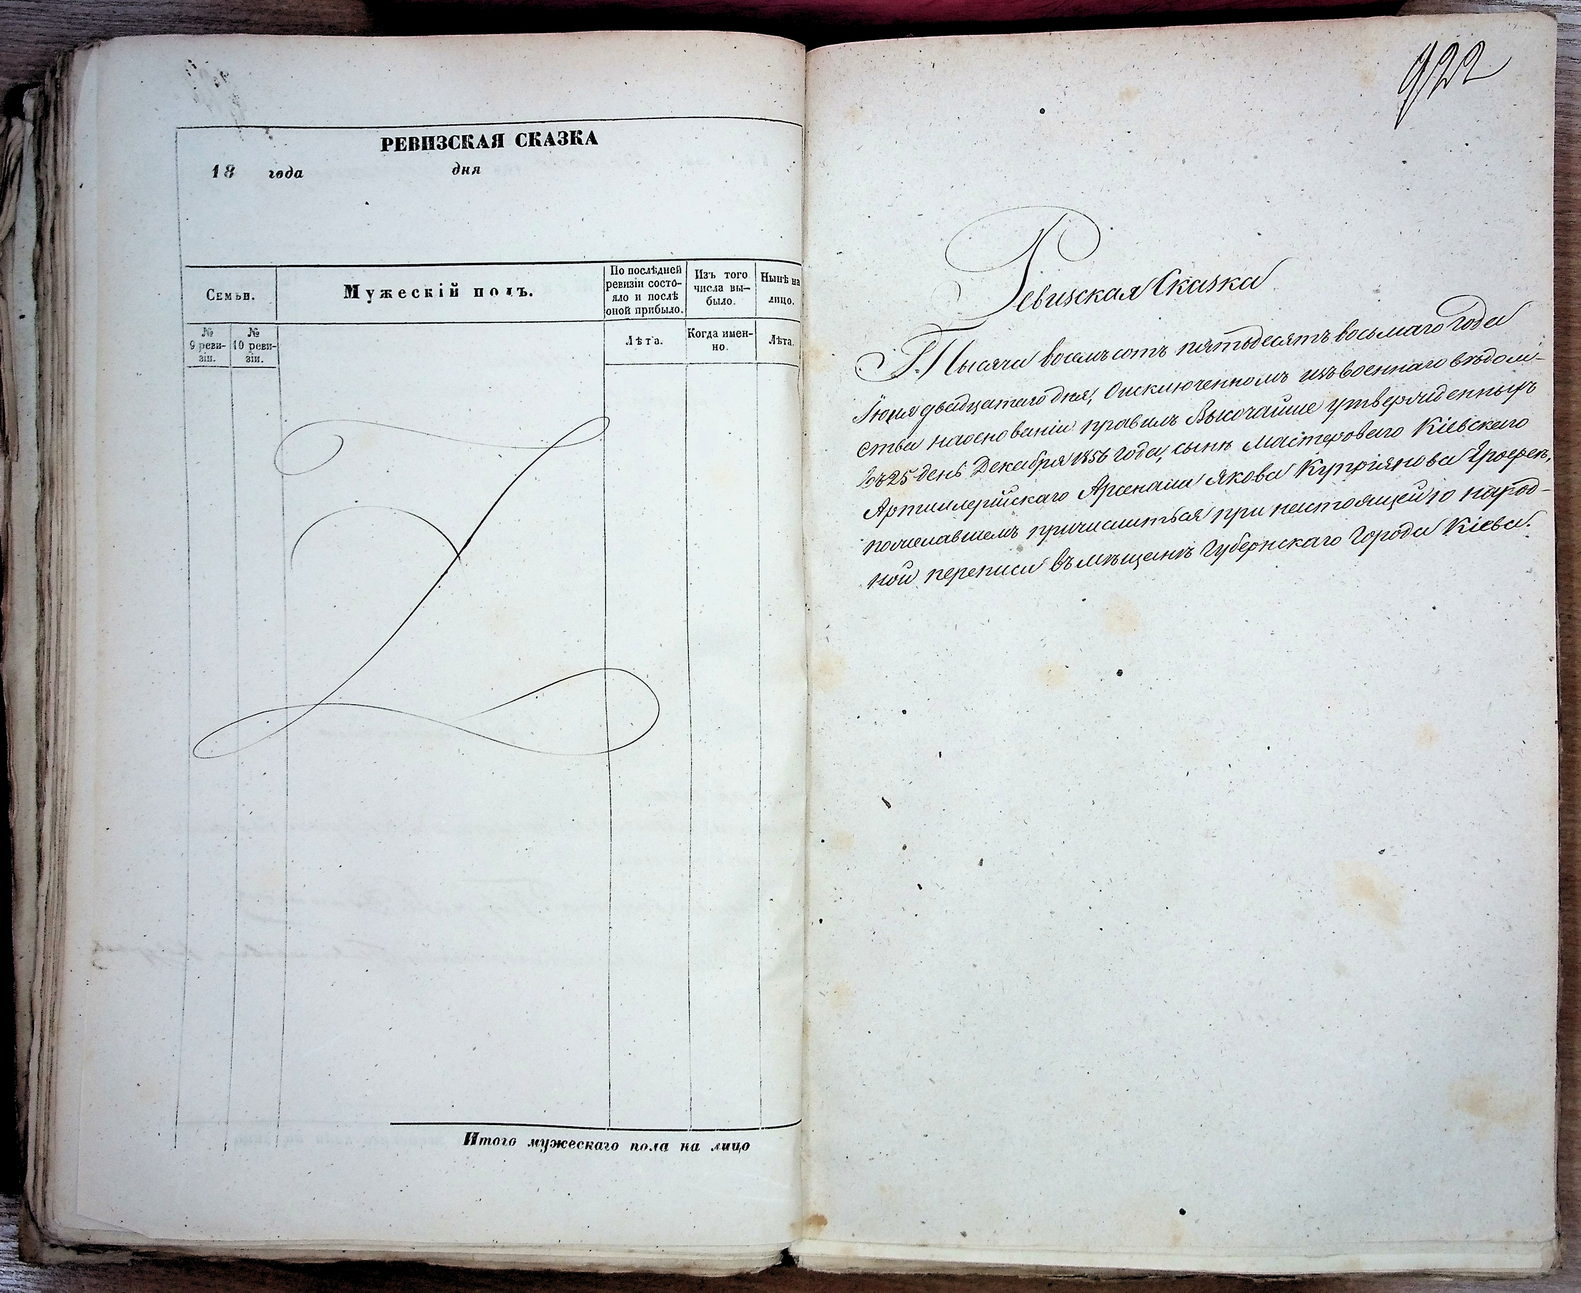 РЕВИЗСКАЯ СКАЗКА
18 года дня
Семьи.
Мужескій полъ.
По послѣдней ревизіи состо-
яло и послѣ
оной прибыло.
Изъ того
числа вы-
было.
Нынѣ на
лицо.
№
9 реви-
зіи.
№
10 реви-
зіи.
Лѣта.
Когда имен-
но.
Лѣта.
Итого мужескаго пола на лицо
922
Ревизская Сказка
Тысяча восемьсотъ пятьдесятъ восьмаго Года
Іюня двадцатаго дня, О исключенномъ изъ военнаго вѣдом-
ства на основаніи правилъ Высочайше утвержденныхъ
въ 25 день Декабря 1856 года, сынѣ Мастероваго Кіевскаго
Артиллерійскаго Арсенала Якова Купріянова
пожелавшемъ причислиться при настоящей 10 народ-
ной переписи въ мѣщане Губернскаго Города Кіева.